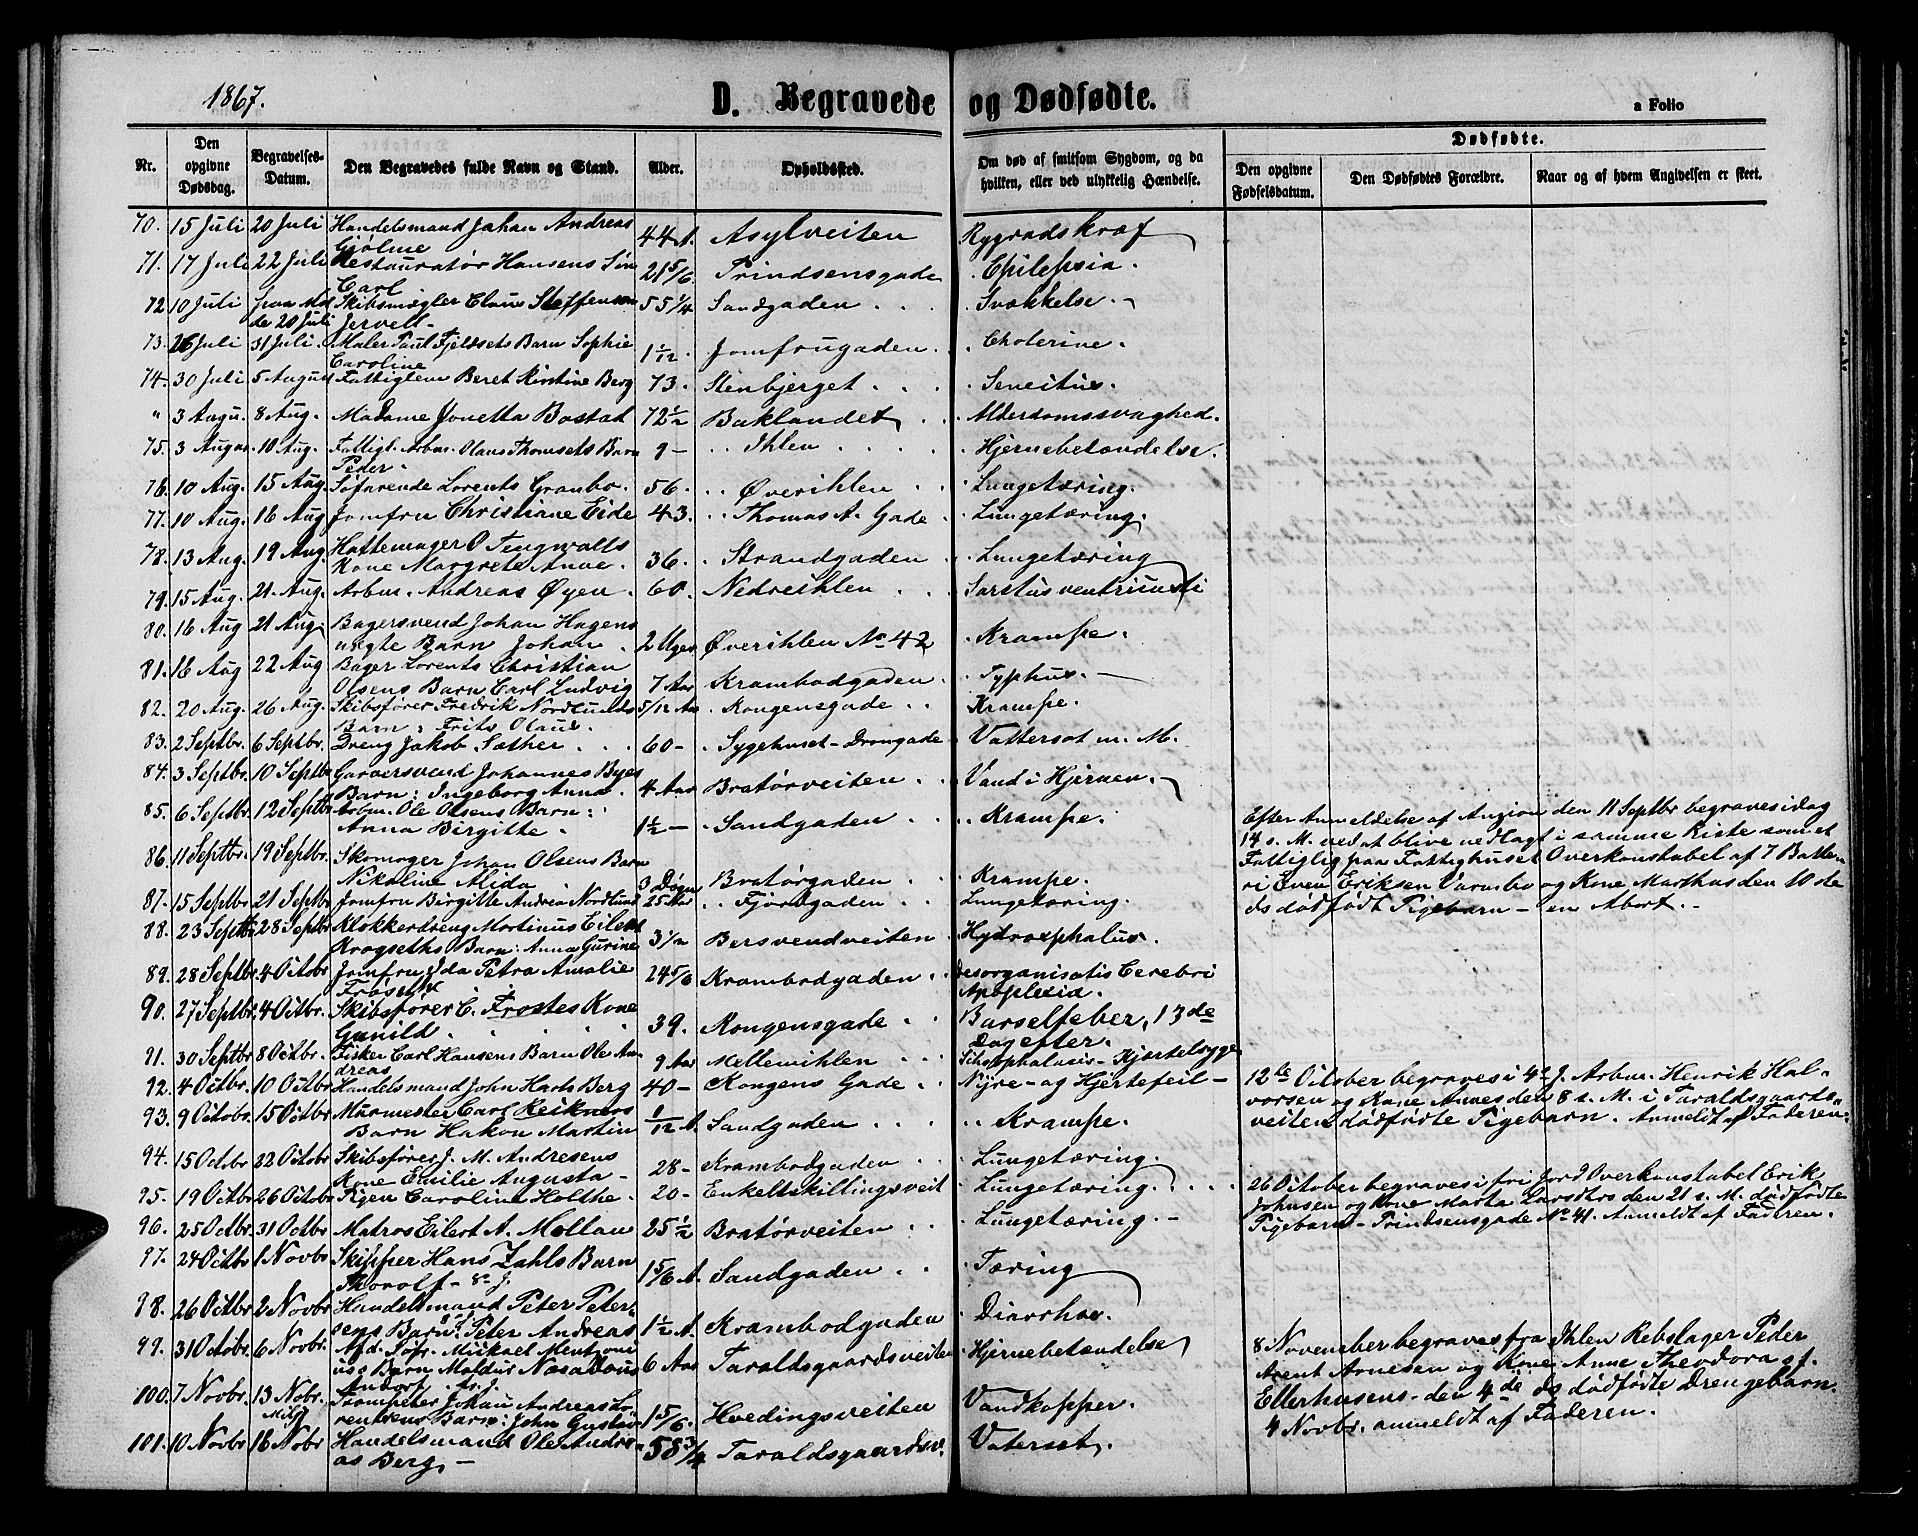 1867.
D. Begravede og Dødfødte.
a Folio
Nr.
Den opgivne Dødsdag.
Begravelses-Datum.
Den Begravedes fulde Navn og Stand.
Alder.
Opholdssted.
Om død af smitsom Sygdom, og da hvilken, eller ved ulykkelig Hændelse.
Dødfødte.
Den opgivne Fødselsdatum.
Den Dødfødtes Forældre.
Naar og af hvem Angivelsen er skeet.
70. 15 Juli 20 Juli Handelsmand Johan Andreas
Gjølme 44 A. Asylveiten Rygradskræf
71. 17 Juli 22 Juli Restauratør Hansens Søn
Carl 21 5/6 Prindsensgade Epilepsia.
72 10 Juli paa Md Skibsmægler Claus Steffensen 55 1/4 Sandgaden Svækkelse.
de 20 Juli Jervell
73. 26 Juli 31 Juli. Maler Paul Fjeldsets Barn Sophie
Caroline 1 1/12 Jomfrugaden. Cholerine.
74. 30 Juli 5 August Fattiglem Beret Kirstine Berg 73. Stenbjerget Senectus.
" 3 Augu. 8 Aug. Madame Jonetta Bostad 72 1/2 Baklandet Alderdomssvaghed.
75. 3 August 10 Aug. Fattigl. Arbm. Olaus Thomsets Barn 9 - Ihlen Hjernebetændelse.
Peder.
76. 10 Aug. 15 Aug. Søfarende Lorents Granbo. 56. Øverihlen Lungetæring.
77. 10 Aug. 16 Aug Jomfru Christiane Eide 43. Thomas A. Gade Lungetæring.
78. 13 Aug. 19 Aug. Hattemager O Tengwalls
Kone Margrete Anne. 36. Strandgaden Lungetæring
79. 15 Aug. 21. Aug. Arbm. Andreas Øyen. 60. Nedreihlen
80. 16 Aug 21 Aug. Bagersvend Johan Hagens
uægte Barn Johan. 2 Uger Øverihlen No 42 Krampe.
81. 16 Aug 22 Aug Bager Lorents Christian
Olsens Barn Carl Ludvig 7 Aar Krambodgaden. Typhus.
82. 20 Aug. 26 Aug. Skibsfører Fredrik Nordlunds 5/12 Aar Kongensgade Krampe.
Barn: Frits Olaus.
83. 2 Septbr. 6 Septbr. Dreng Jakob Sæther 60 - Sygehuset - Drongade Vattersot m. M.
84. 3 Septbr. 10 Septbr Garversvend Johannes Byes
Barn: Ingeborg Anna. 4 Aar Bratørveiten Vand i Hjernen.
85. 6 Septbr. 12 Septbr Arbm. Ole Olsens Barn:
Anna Birgitte. 1 1/2 - Sandgaden Krampe.
86. 11 Septbr. 19 Septbr. Skomager Johan Olsens Barn
Nikoline Alida 3 Døgn Bratørgaden Krampe.
87. 15 Septbr. 21 Septbr Jomfru Birgitte Andrea Nordlund 25 Aar Fjordgaden Lungetæring.
88. 23 Septbr 28 Septbr Klokkerdreng Martinus Eilert
Krogseths Barn: Anna Gurine 3 1/2 Bersvendveiten Hydrocephalus.
89. 28 Septbr 4 Octobr Jomfru Ida Petra Amalie
Frøseth 24 5/6 Krambodgaden Desorganisatis Cerebri
Apoplexia.
90. 27 Septbr. 4 Octbr. Skibsfører C. Frostes Kone
Gunild. 39. Kongensgade Barselfeber, 13de
Dag efter.
91. 30 Septbr 8 Octbr. Fisker Carl Hansens Barn Ole An
dreas 9 Aar Mellemihlen - Kjertelsyge
92. 4 Octbr. 10 Octbr Handelsmand John Harts Berg 40 - Kongens Gade Nyre- og Hjertefeil -
93. 9 Octobr. 15 Octbr Murmester Carl Keikners
Barn Hakon Martin 1/12 A. Sandgaden Krampe.
94. 15 Octbr 22 Octobr Skibsfører J. M. Andresens
Kone Emilie Augusta - 28 - Krambodgaden Lungetæring.
95. 19 Octbr 26 Octobr Pigen Caroline Holthe. 20 - Enkeltskillingsveit Lungetæring.
96. 25 Octbr. 31 Octbr Matros Eilert A. Mollan 25 1/2 Bratørveiten Lungetæring. -
97. 24 Octbr 1 Novbr Skipper Hans Zahls Barn
Thorolf - 1 5/6 A. Sandgaden Tæring
98. 26 Octbr. 2 Novbr Handelsmand Peter Peter-
sens Barn: Peter Andreas 1 1/2 A. Krambodgaden Diarrhoe.
99. 31 Octobr 6 Novbr. Afd. Søfr. Mickael
6 Aar Taraldsgaardsveiten Hjernebetændelse
100. 7 Novbr. 13 Nobr. Trompeter Johan Andreas Lo-
rentsens Barn: John Gustav 1 5/6. Hvedingsveiten Vandkopper.
101. 10 Novbr 16 Nobr Handelsmand Ole Andre- 58 3/4 Taraldsgaardsv. Vatersot.
as Berg, -
Efter Anmeldelse af Angjon den 11 Septbr begraves idag
14 s. M. ved at blive nedlagt i samme Kiste som et
Fattiglig paa Fattighuset Overkonstabel af 7 Batte-
ri Even Eriksen Varmbo og Kone Marthas den 10 de
ds dødfødt Pigebarn - en Abort. -
12te October begraves i J. Arbm. Henrik Hal-
vorsen og Kone Annes den 8 s. M. i Taraldsgaards-
veiten dødfødte Pigebarn. Anmeldt af Faderen.
26 October begraves i fri Jord Overkonstabel Erik
Johnsen og Kone Marta Larsdtrs den 21 s. M. dødfødte
Pigebarn - Prindsensgade No 41. Anmeldt af Faderen.
8 November begraves fra Ihlen Rebslager Peder
Arent Arnesen og Kone Anne Theodora f.
Ellerhusens - den 4de ds dødfødte Drengebarn.
4 Novbr. anmeldt af Faderen.